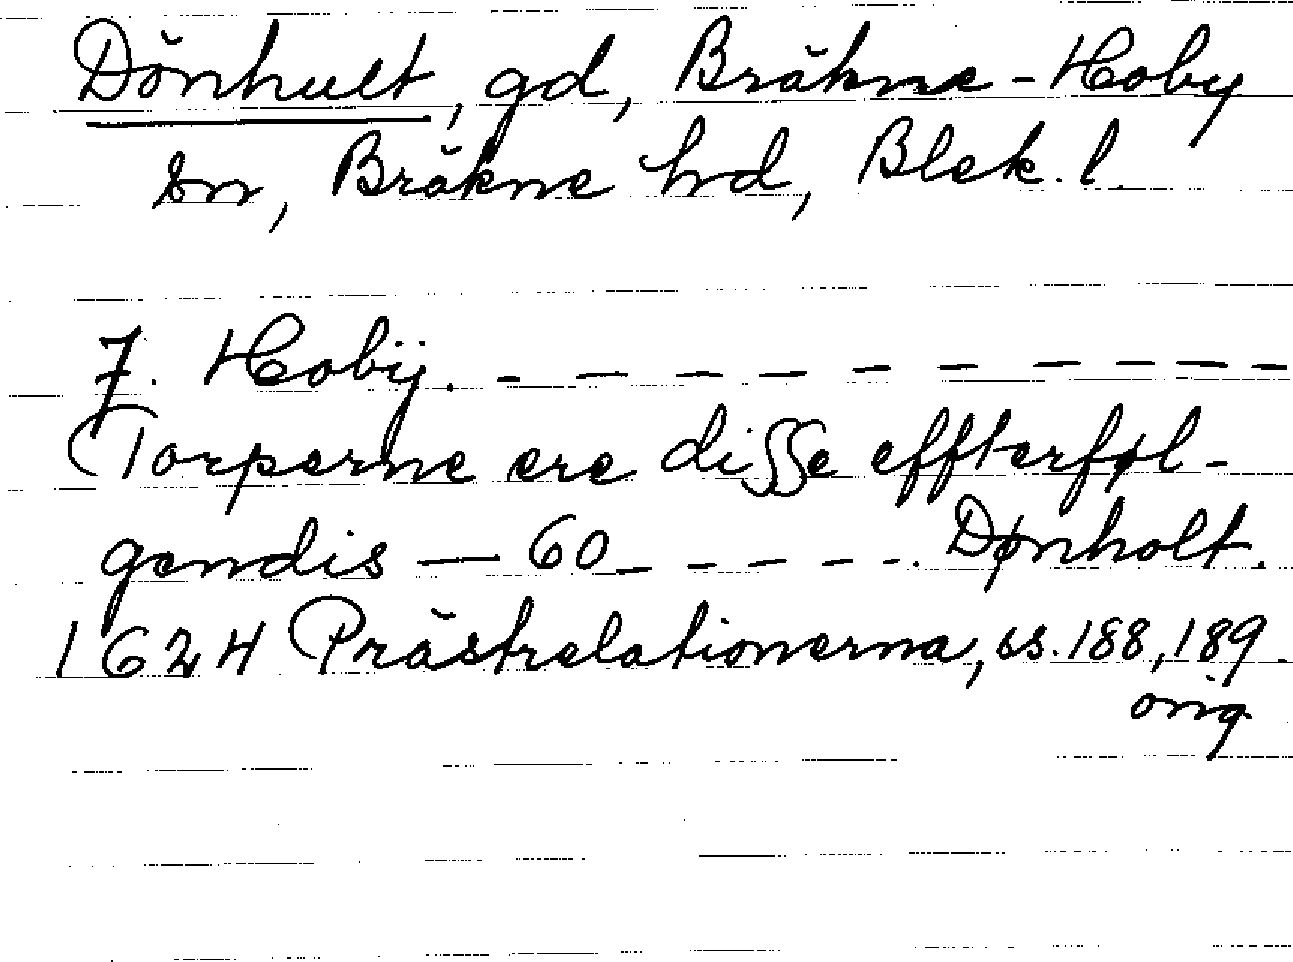 Dönhult, gd, Bräkne-Hoby
sn, Bräkne hd, Blek. l.
7. Hobÿ. - - - - - - - - - -
Torperne ere disse effterføl-
gendis — 60 - - - - - . Dønholt.
1624 Prästrelationerna, ss. 188, 189.
orig